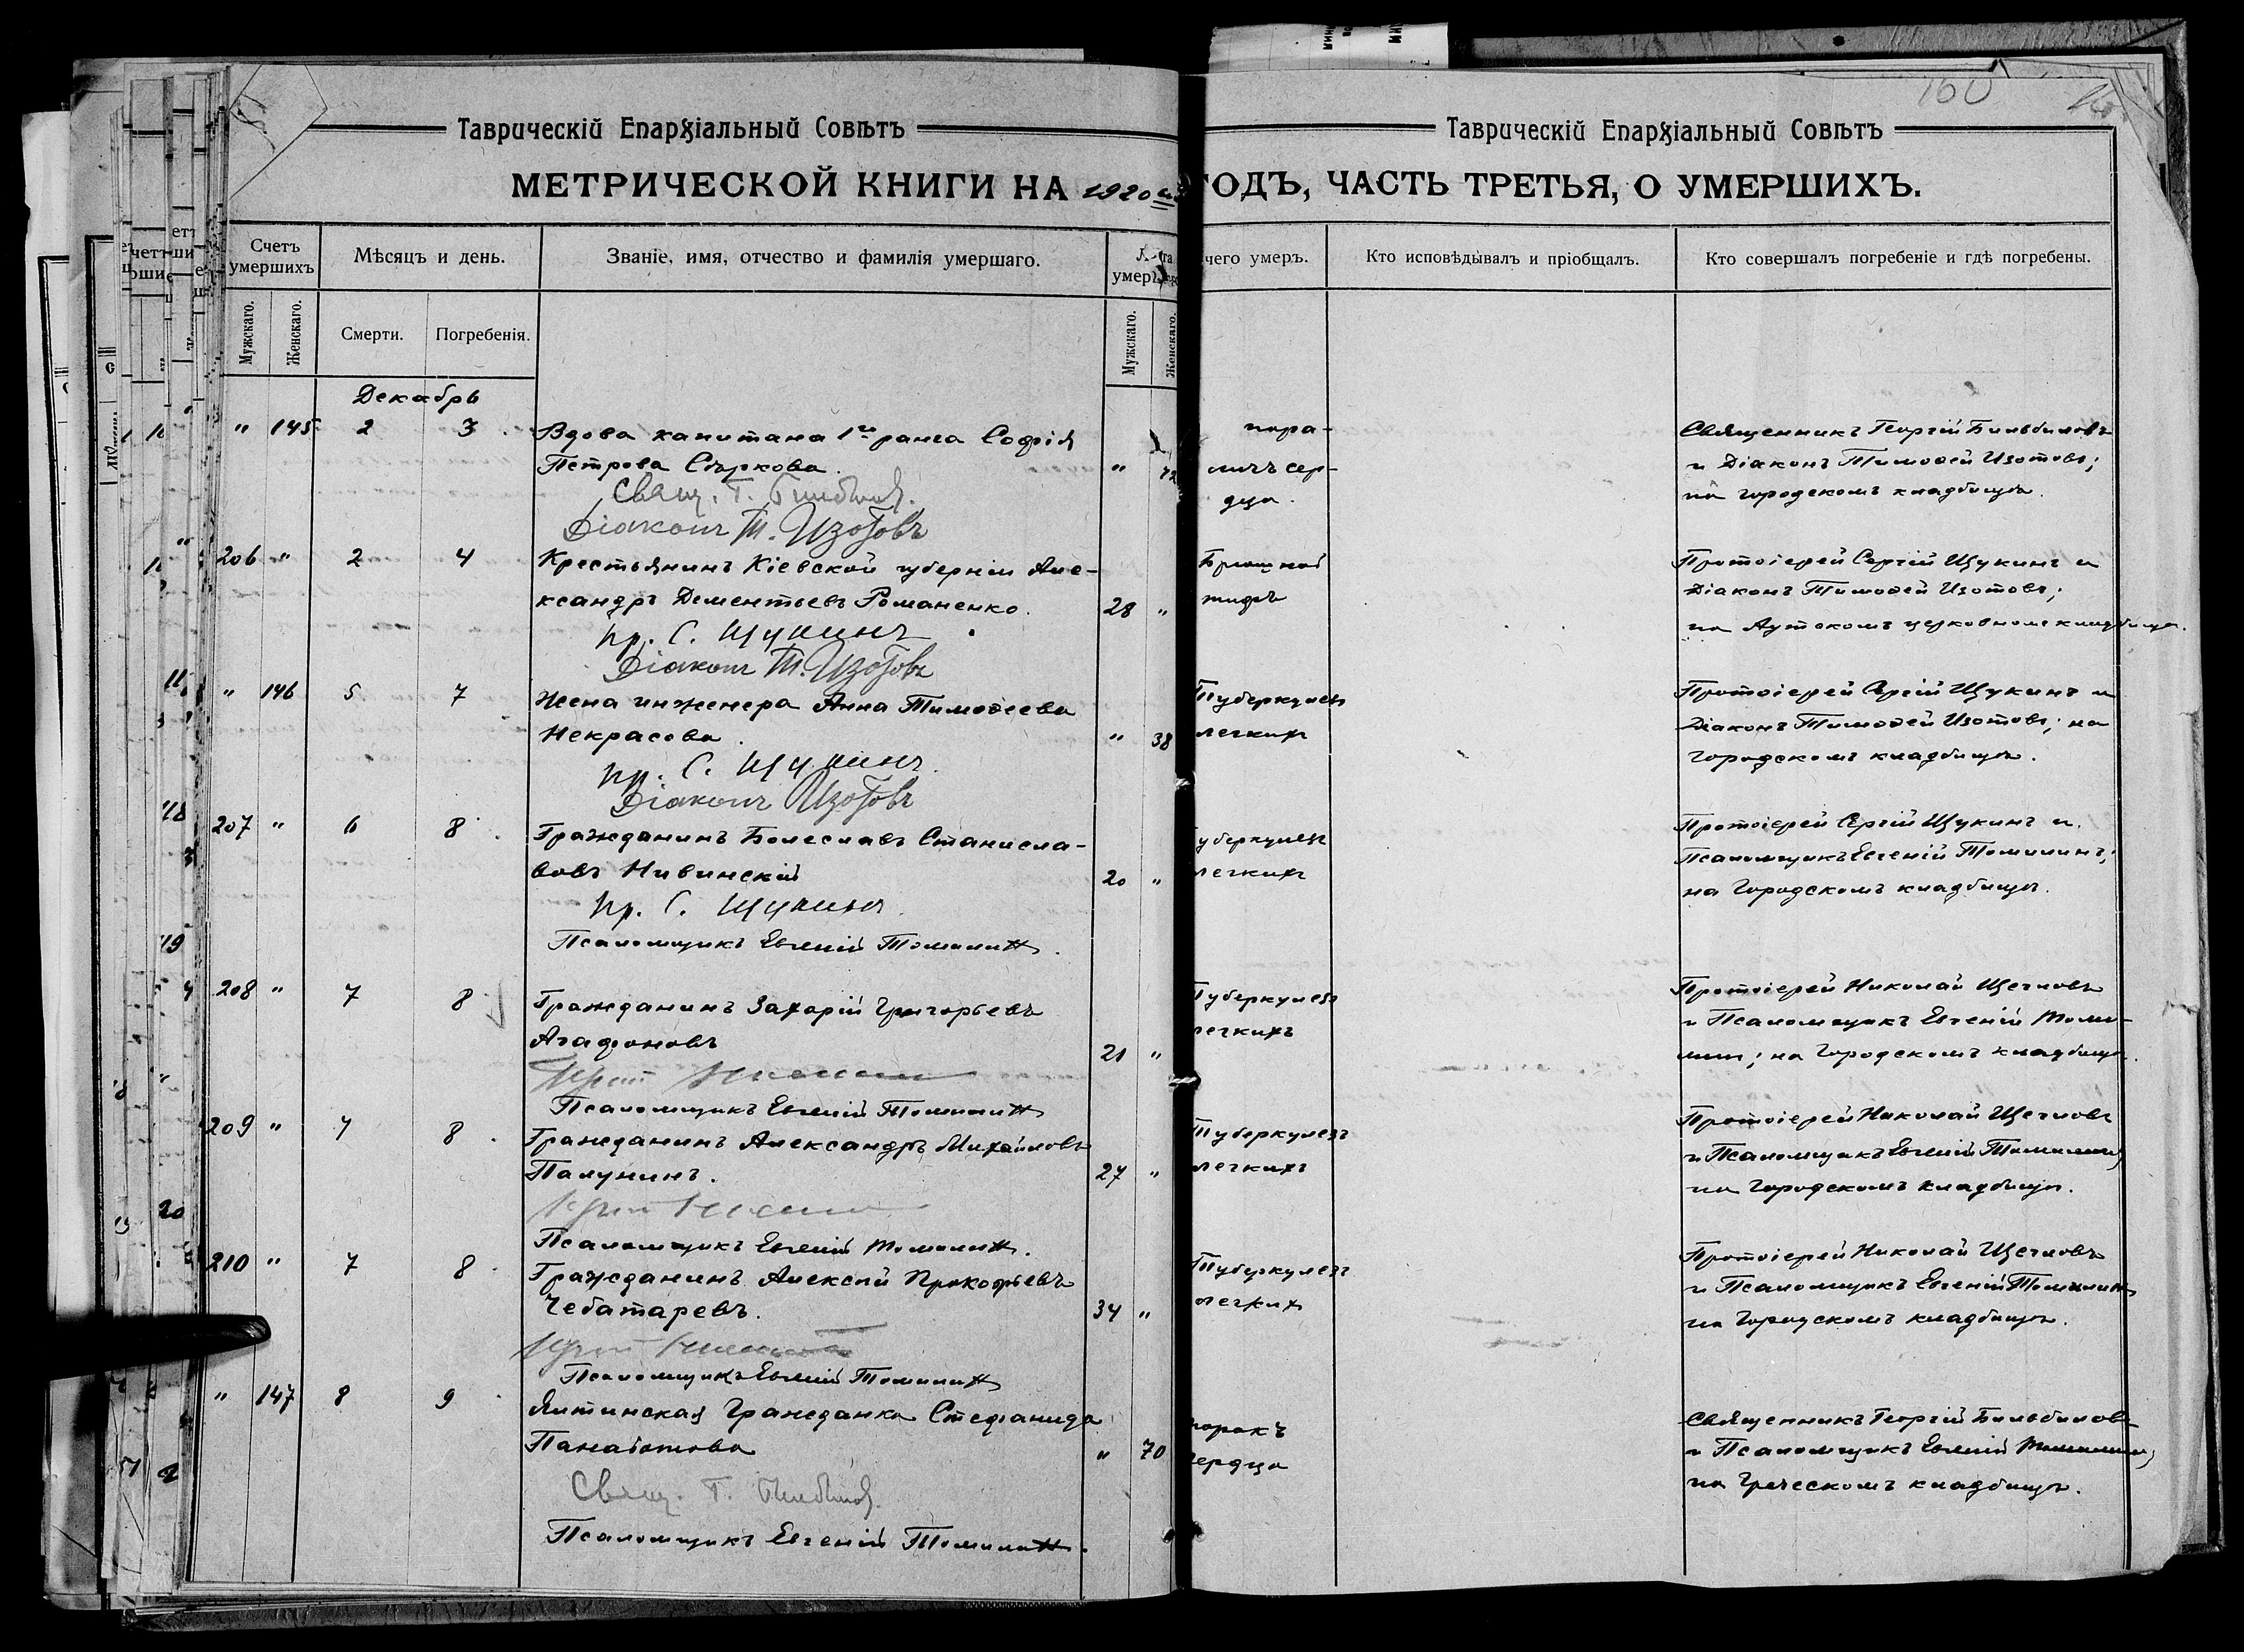 160
Таврическій Епархіальный Совѣтъ
Таврическій Епархіальный Совѣтъ
МЕТРИЧЕСКОЙ КНИГИ НА 1920 ый
ГОДЪ, ЧАСТЬ ТРЕТЬЯ, О УМЕРШИХЪ.
Счетъ умершихъ
Мѣсяцъ и день.
Званіе, имя, отчество и фамилія умершаго.
чего умеръ.
Кто исповѣдывалъ и пріобщалъ.
Кто совершалъ погребеніе и гдѣ погребены.
Мужскаго.
Женскаго.
Смерти.
Погребенія.
Мужскаго.
Женскаго.
Декабрь
" 145 2 3
Вдова капитана 1го ранга Софія
Петрова Съркова.
" 72
Свящ. Т.
Діаконъ Т. Изотовъ
пара-
личъ сер-
дца.
Священникъ Георгій Бильбиловъ
и Діаконъ Тимоѳей Изотовъ;
на городскомъ кладбищѣ.
206 " 2 4
Крестьянинъ Кіевской губерніи Але-
ксандръ Дементьевъ Романенко.
28 "
пр. С. Щукинъ
Діаконъ Т. Изотовъ
Брюшной
тифъ
Протоіерей Сергій Щукинъ и
Діаконъ Тимоѳей Изотовъ;
на Аутскомъ церковномъ кладбищѣ.
" 146 5 7
Жена инженера Анна Тимоѳеева
Некрасова.
" 38
пр. С. Щукинъ.
Діаконъ Изотовъ
Туберкулезъ
легкихъ
Протоіерей Сергій Щукинъ и
Діаконъ Тимоѳей Изотовъ; на
городскомъ кладбищѣ.
207 " 6 8
Гражданинъ Болеславъ Станисла-
вовъ Нивинскій
20 "
пр. С. Щукинъ.
Псаломщикъ Евгеній Томилинъ.
уберкулезъ
легкихъ
Протоіерей Сергій Щукинъ и
Псаломщикъ Евгеній Томилинъ;
на Городскомъ кладбищѣ.
208 " 7 8
Гражданинъ Захарій Григорьевъ
Агафоновъ
21 "
Псаломщикъ Евгеній Томилинъ
Туберкулезъ
легкихъ
Протоіерей Николай Щегловъ
и Псаломщикъ Евгеній Томи-
линъ; на Городскомъ кладбищѣ.
209 " 7 8
Гражданинъ Александръ Михайловъ
Палунинъ.
27 "
Псаломщикъ Евгеній Томилинъ.
Туберкулезъ
легкихъ
Протоіерей Николай Щегловъ
и Псаломщикъ Евгеній Томилинъ;
на Городскомъ кладбищѣ.
210 " 7 8
Гражданинъ Алексѣй Прокофьевъ
Чебатаревъ.
34 "
Псаломщикъ Евгеній Томилинъ
Туберкулезъ
легкихъ
Протоіерей Николай Щегловъ
и Псаломщикъ Евгеній Томилинъ
на Городскомъ кладбищѣ.
" 147 8 9
Ялтинская Гражданка Стефанида
Панаіотова
" 70
Свящ. Г.
Псаломщикъ Евгеній Томилинъ.
порокъ
сердца
Священникъ Георгій Бильбиловъ
и Псаломщикъ Евгеній Томилинъ;
на Греческомъ кладбищѣ.